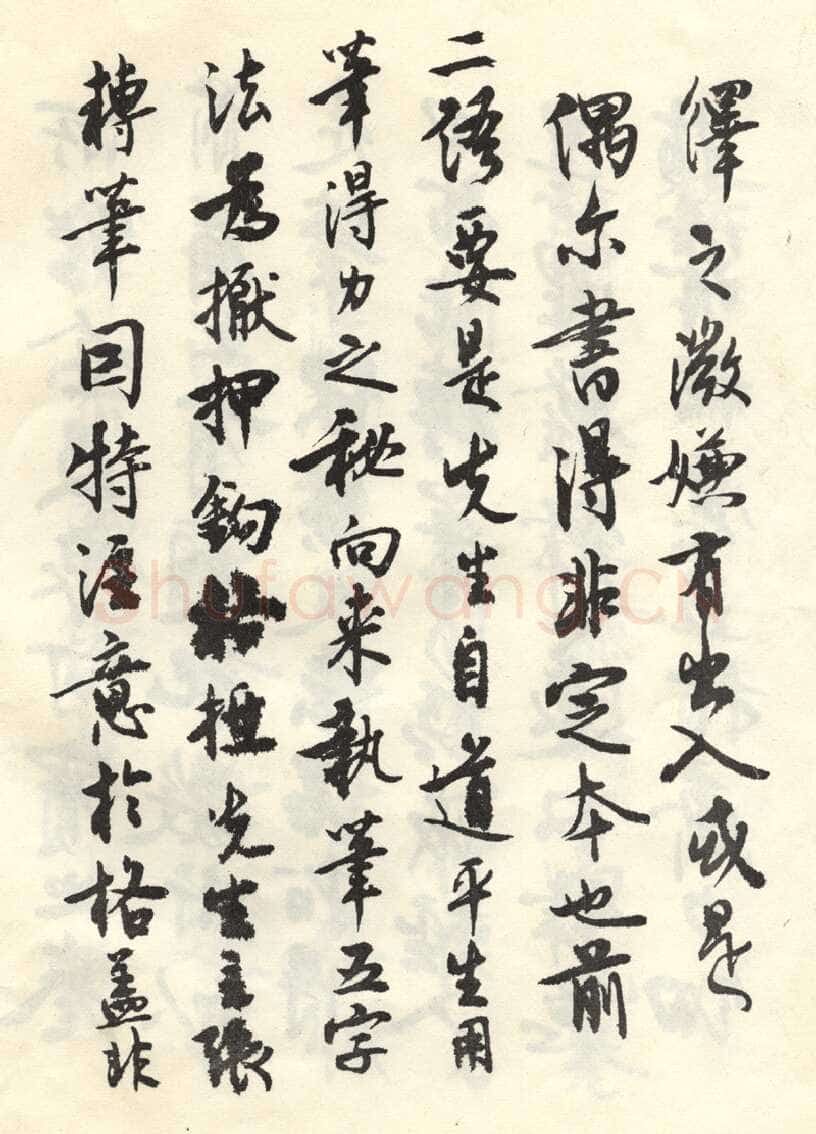 繹之微嫌有出入或是
偶尔書得非定本也前
二語要是先生自道平生用
筆得力之秘向来執筆五字
法爲擫押鈎抵先生主張
轉筆因特注意於格蓋非
Shufawang.CN